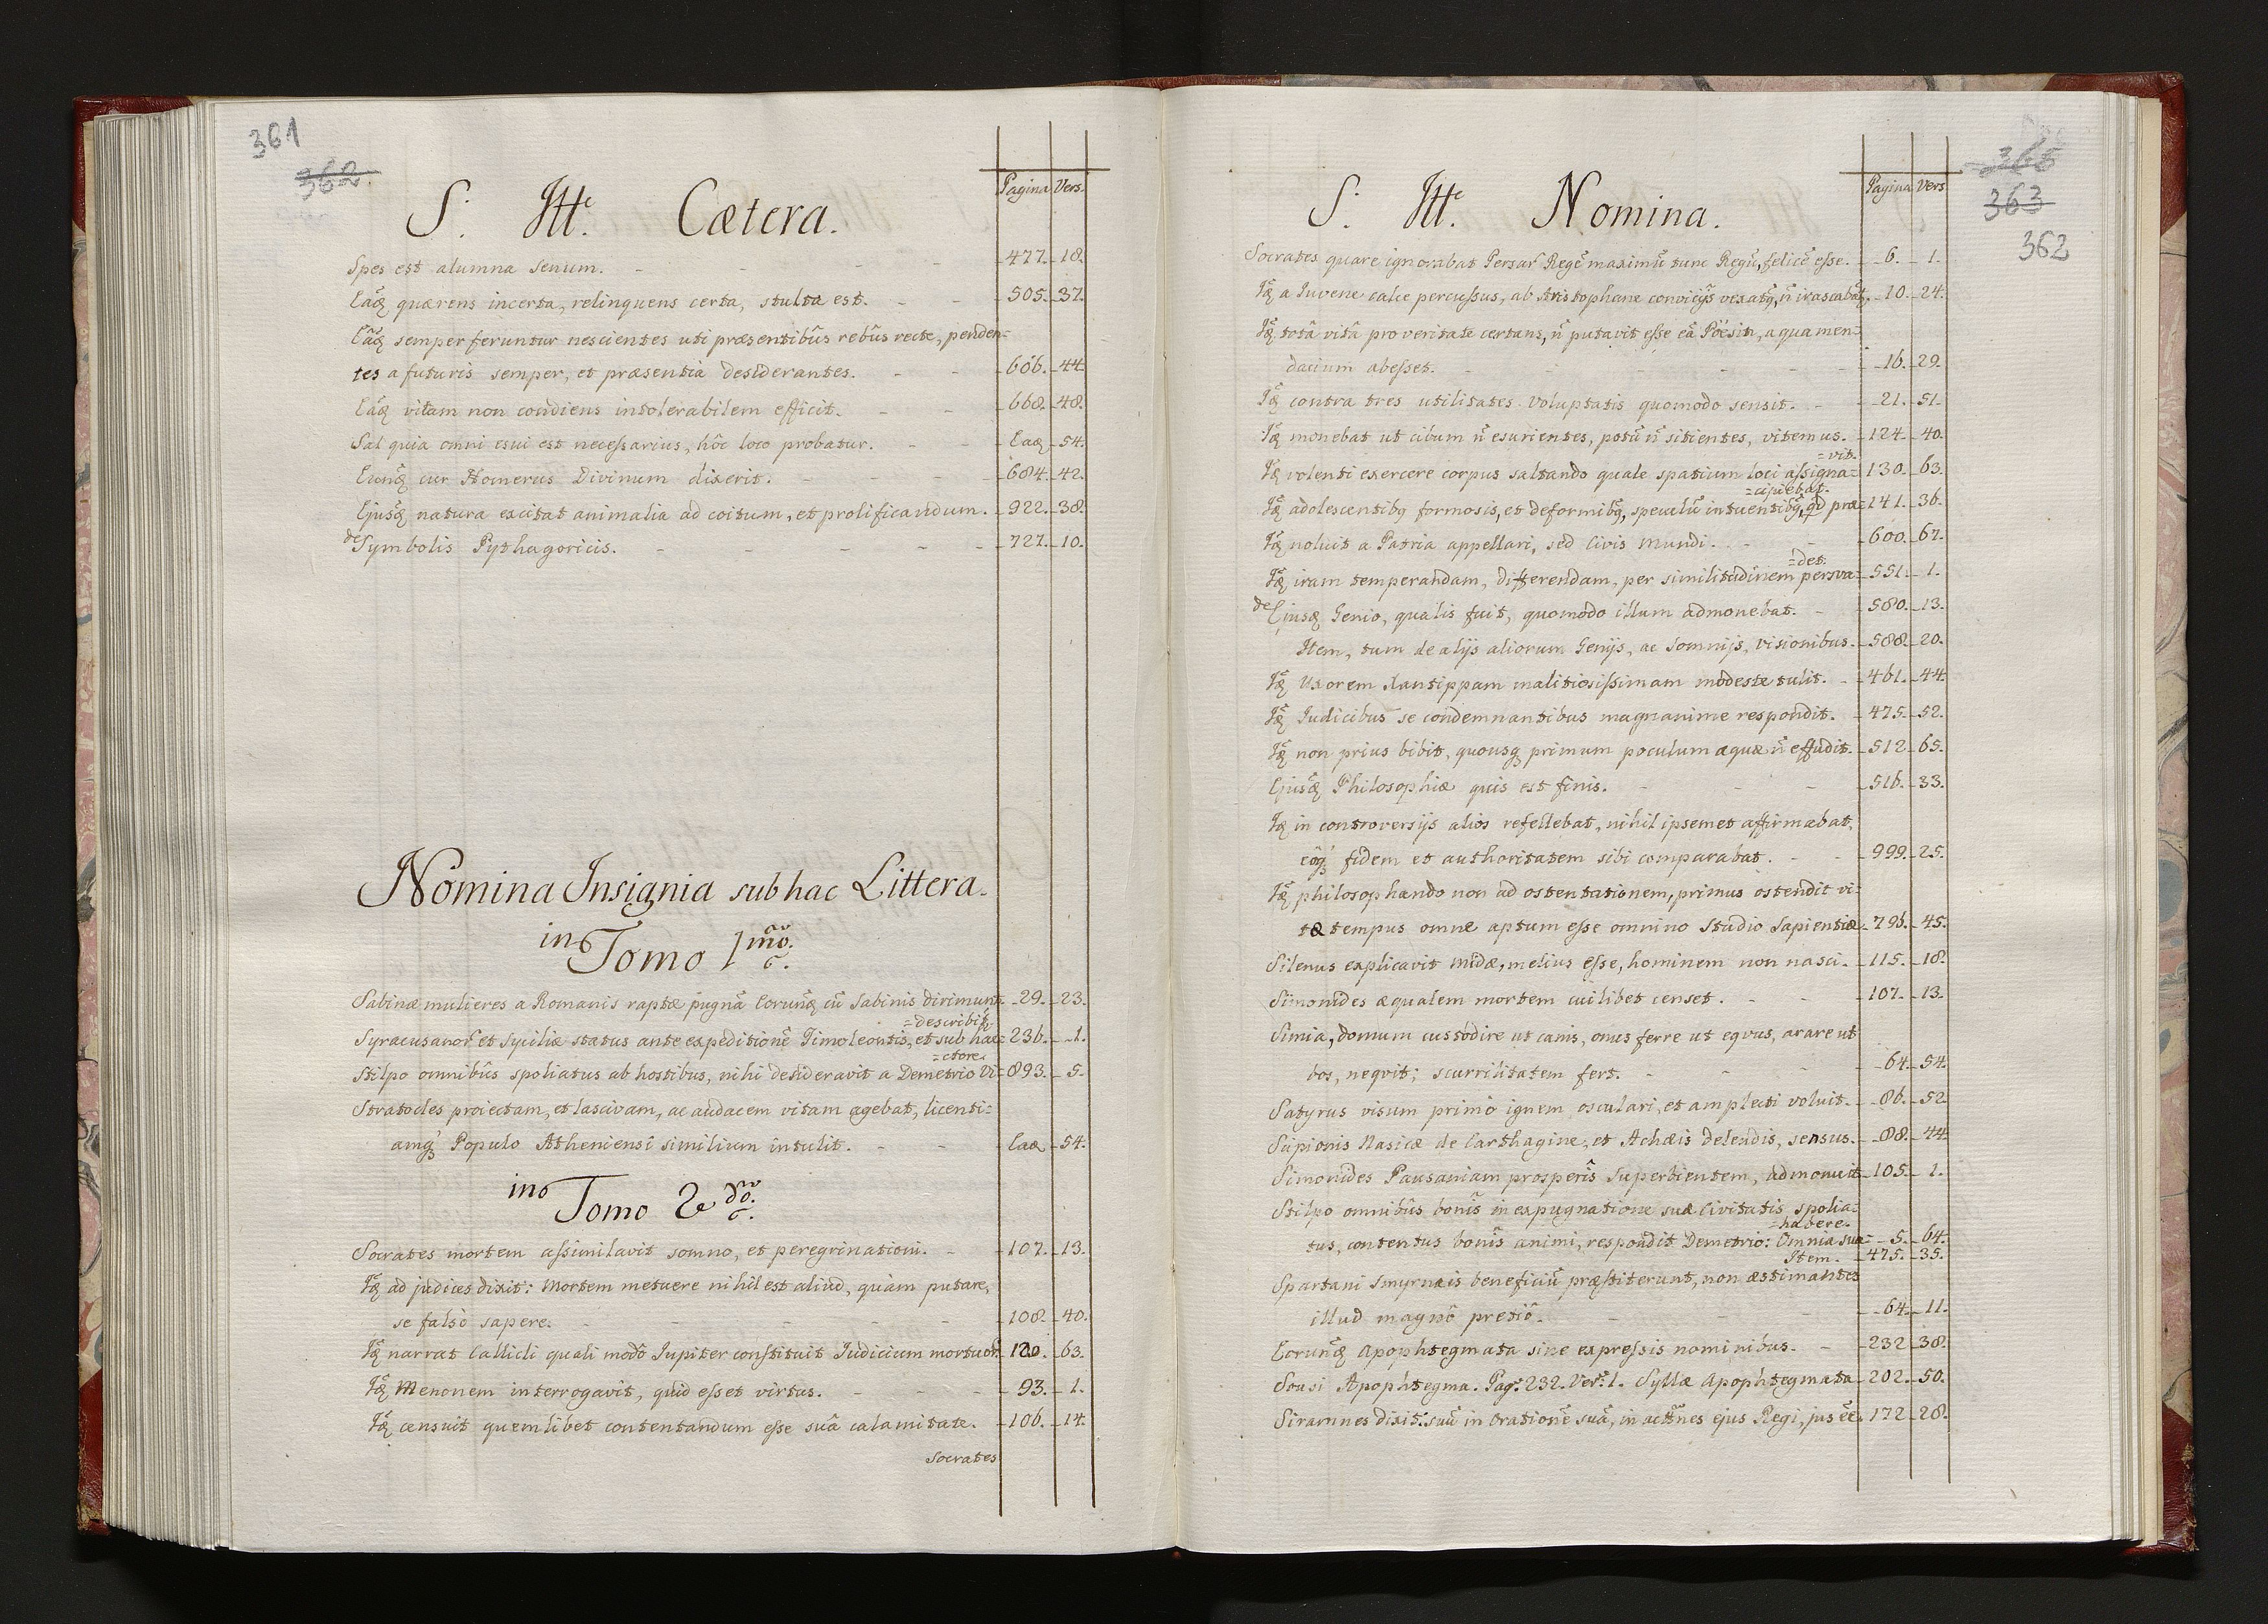 361
362.
Pagina Vers.
S. Itt͛. Cætera.
Spes est alumna senum. - 477. 18.
Eaq̃ quærens incerta, relinquens certa, stulta est. - 505. 37.
Eaq̃ semper feruntur nescientes uti præsentibûs rebûs recte, penden=
tes a futuris semper, et præsentia desiderantes. - 606. 44.
Eaq̃ vitam non condiens intolerabilem efficit. - 668. 48.
Sal quia omni esui est necessarius, hôc loco probatur. - Eaq 54.
Eunq̃ cur Homerus Divinum dixerit. - 684. 42.
Ejusq̃ natura excitat animalia ad coitum, et prolificandum. 922. 38.
de Symbolis Pythagoricis. - 727. 10.
Nomina Insignia sub hac Littera.
in Tomo 1mo.
Sabinæ mulieres a Romanis raptæ pugnã Eorunq̃ cũ Sabinis dirimunt. 29. 23.
=describit̃
Syracusanor̃ et Syciliæ status ante expeditionẽ Timoleontis, et sub hac= 236. 1.
=ctore.
Stilpo omnibûs spoliatus ab hostibus, nihi desideravit a Demetrio Vi= 893. 5.
Stratocles proiectam, et lascivam, ac audacem vitam agebat, licenti=
amq́ Populo Atheniensi similium intulit. - Eaq 54.
in Tomo 2do.
Socrates mortem assimilavit somno, et peregrinationi. - 107. 13.
Iq̃ ad judices dixit: Mortem metuere nihil est aliud, quàm putare,
se falsò sapere. - 108. 40.
Iq̃ narrat Callicli quali modô Jupiter constituit Judicium mortuor̃. 120. 63.
Iq̃ Menonem interrogavit, quid esset virtus. - 93. 1.
Iq̃ censuit quemlibet contentandum esse suâ calamitate. 106. 14.
Socrates
365
363
362
Pagina Vers
S. Itt͛. Nomina.
Socrates quare ignorabat Persar̃ Regẽ maximũ tunc Regũ, felicẽ esse. 6. 1.
Iq̃ a Juvene calce percussus, ab Aristophane convicijs vexatq̃, ñ irascabat̃. 10. 24.
Iq̃ totâ vitâ pro veritate certans, ñ putavit esse eã Pöesin, a qua men=
dacium abesset. - 16. 29.
Iq̃ contra tres utilitates voluptatis quomodo sensit. - 21. 51.
Iq̃ monebat ut cibum ñ esurientes, potũ ñ sitientes, vitemus. 124. 40.
=vit.
Iq̃ volenti exercere corpus saltando quale spatium loci assigna= 130. 63.
=cipiebat.
Iq̃ adolescentibq̃ formosis, et deformibq̃, speculũ intuentibq̃, qd præ= 141. 36.
Iq̃ noluit a Patria appellari, sed Civis Mundi. - 600. 67.
=det.
Iq̃ iram temperandam, differendam, per similitudinem persva= 551. 1.
de Ejusq̃ Genio, qualis fuit, quomodo illum admonebat. - 580. 13.
Item, tum de alijs aliorum Genijs, ac Somnijs, Visionibus. 588. 20.
Iq̃ Uxorem Xantippam malitiosissimam modeste tulit. - 461. 44.
Iq̃ Judicibus se condemnantibus magnanime respondit. - 475. 52.
Iq̃ non prius bibit, quousq́ primum poculum aquæ ñ effudit. 512 65.
Ejusq̃ Philosophiæ quis est finis. - 516. 33.
Iq̃ in controversijs alios refellebat, nihil ipsemet affirmabat,
eôq́ fidem et authoritatem sibi comparabat. - 999. 25.
Iq̃ philosophando non ad ostentationem, primus ostendit vi=
tæ tempus omne aptum esse omnino Studio Sapientiæ. 796. 45.
Silenus explicavit Midæ, melius esse, hominem non nasci. 115. 18.
Simonides æqualem mortem cuilibet censet. - 107. 13.
Simia, domum custodire ut canis, onus ferre ut eqvus, arare ut
bos, neqvit; scurrilitatem fert. - 64. 54.
Satyrus visum primò ignem, osculari, et amplecti voluit. 86. 52.
Scipionis Nasicæ de Carthagine, et Achæis delendis, sensus. 88. 44.
Simonides Pausaniam prosperis superbientem, admonuit. 105. 1.
Stilpo omnibûs bonis in expugnatione suæ Civitatis spolia=
=habere.
tus, contentus bonis animi, respondit Demetrio: Omnia sua= 5. 64.
Item. 475. 35.
Spartani Smyrnæis beneficiũ præstiterunt, non æstimantes
illud magnô pretiô. - 64. 11.
Eorunq̃ Apophtegmata sine expressis nominibus. - 232 38.
Sousi Apophtegma. Pag: 232. Ver: 1. Syllæ Apophtegmata 202. 50.
Siramnes dixit: suũ in Orationẽ suâ, in acttnes ejus Regi, jus eẽ. 172 28.